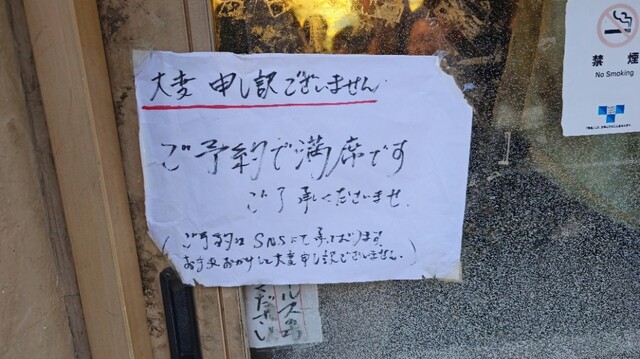 大変申し訳ございません
ご予約で満席です
ご了承くださいませ.
(ご予約は SNSにて承っております.
お手数おかけして大変申し訳ございません.)
禁煙
No Smoking
ください